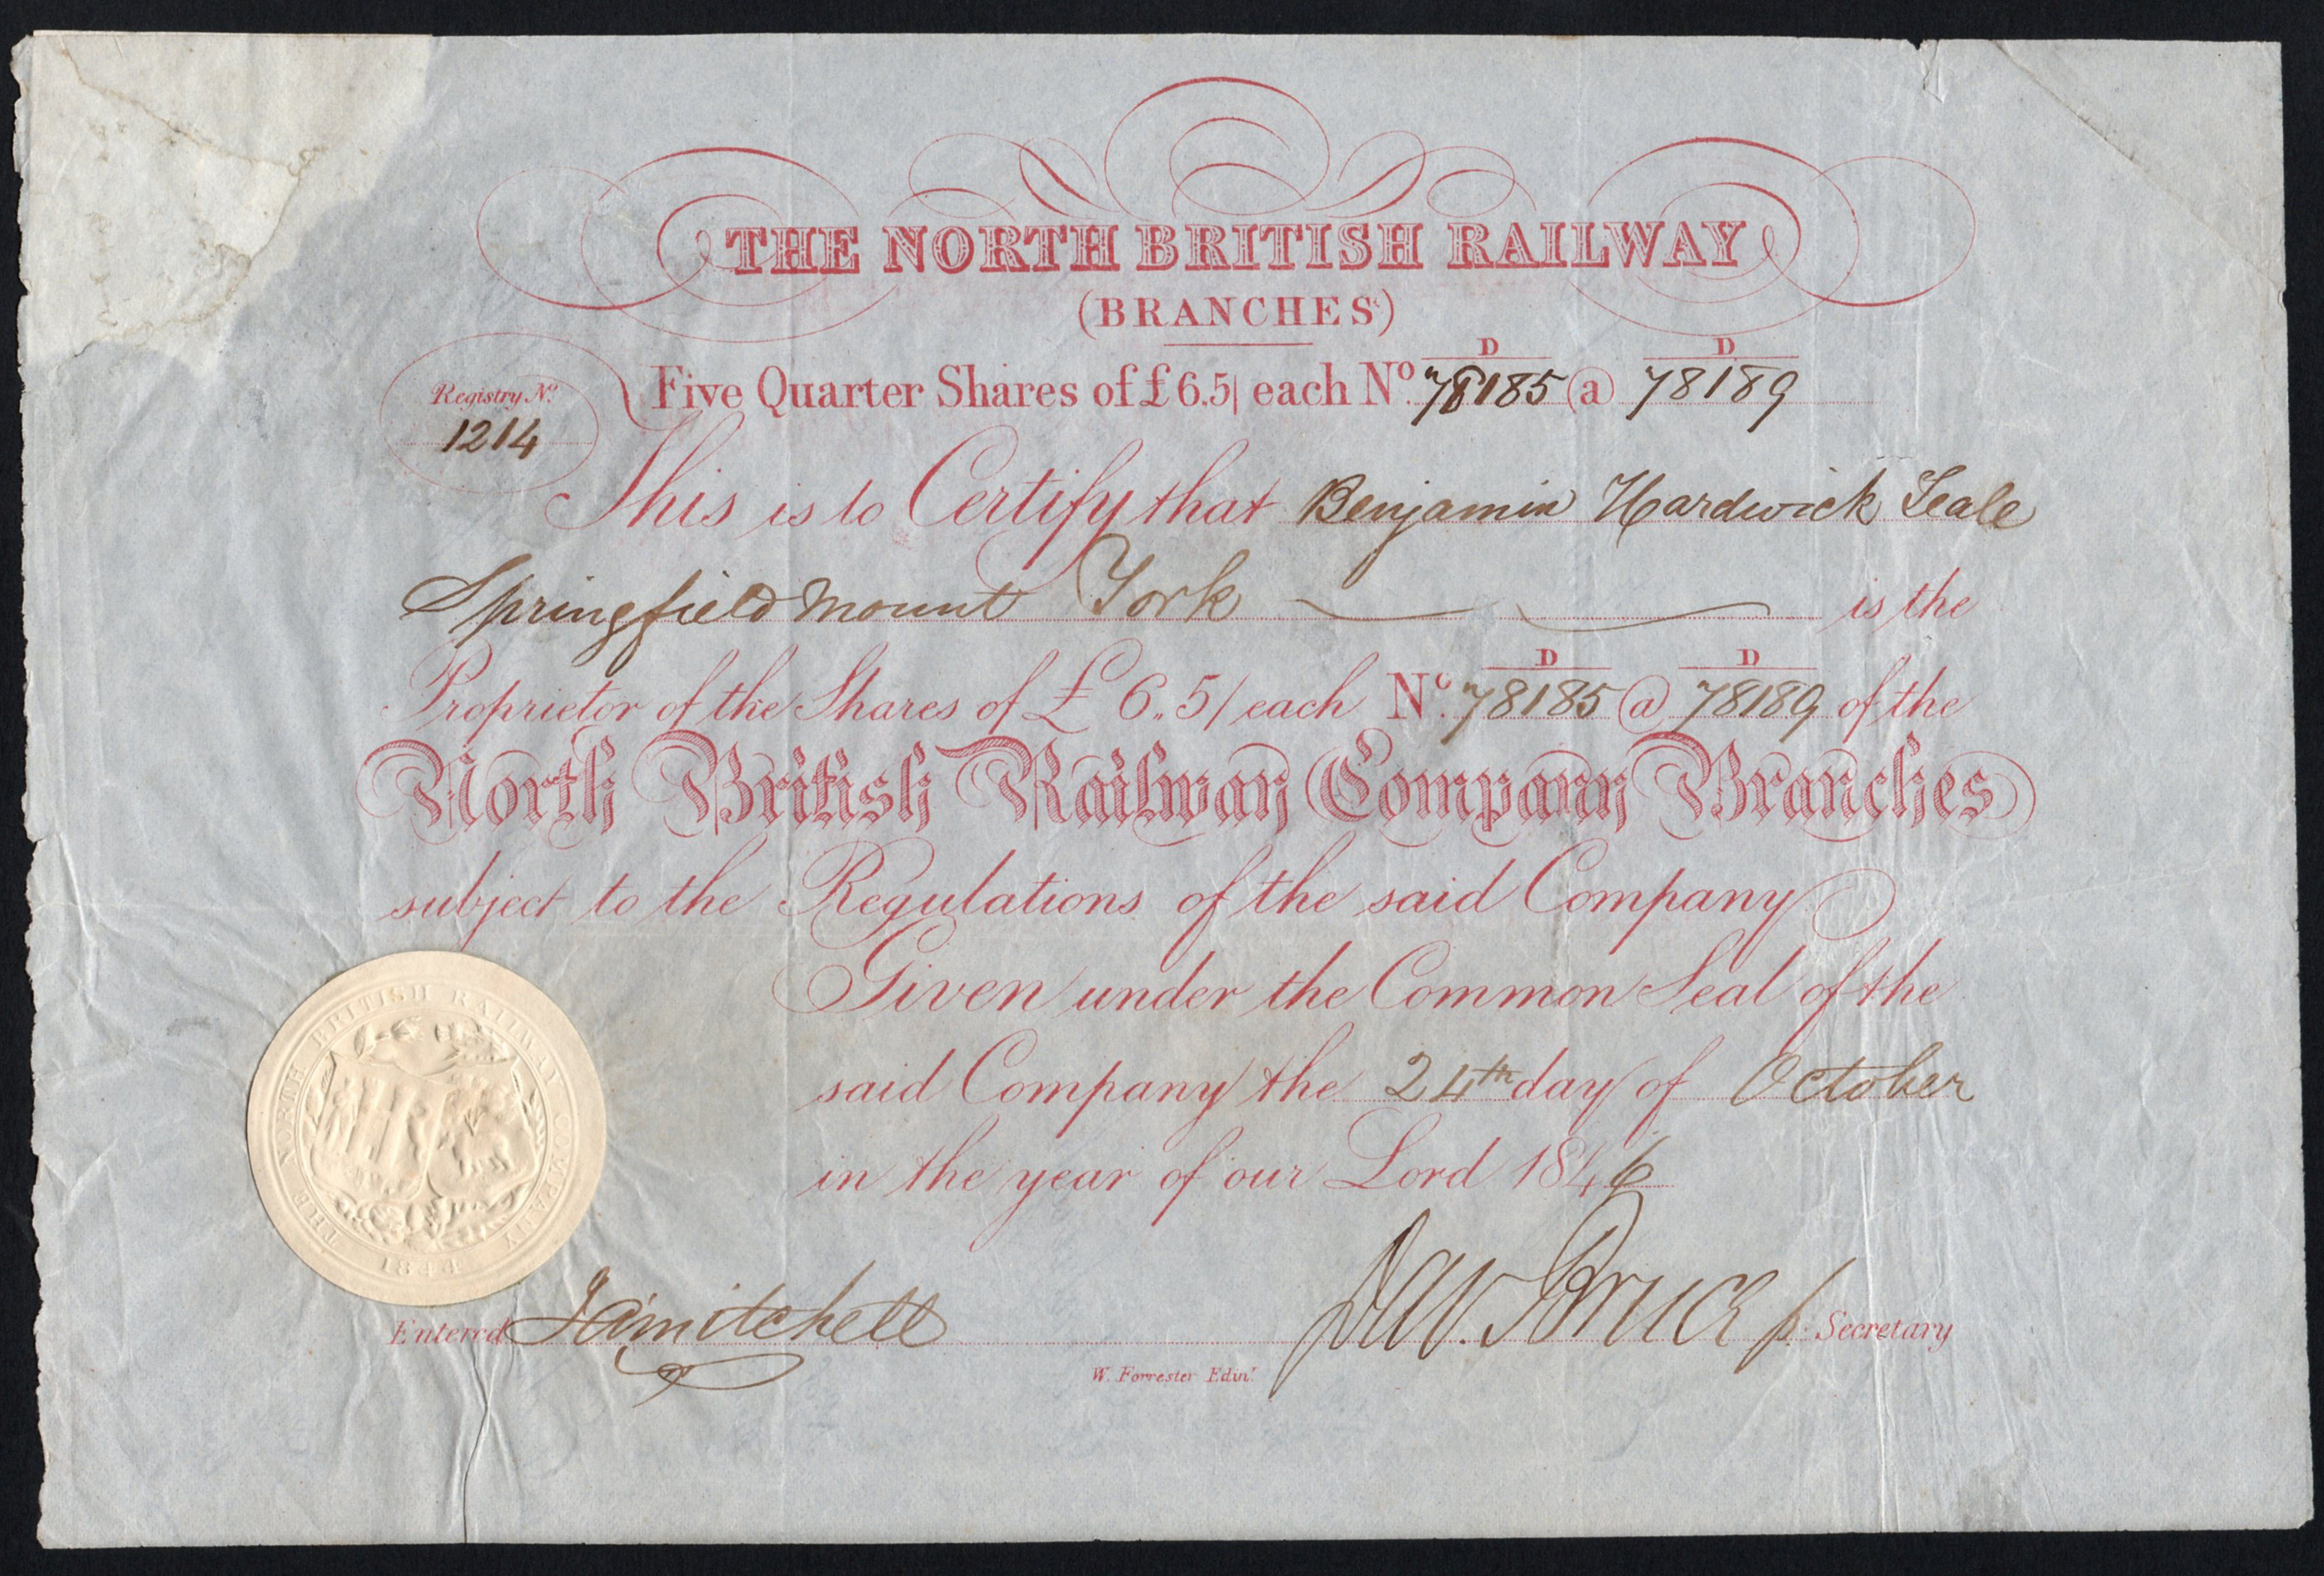 THE NORTH BRITISH RAILWAY
(BRANCHES)
D D
Five Quarter Shares of £6.5/ each No. 78185 @ 78189
Registry No.
1214
This is to Certify that Benjamin Hardwick Seale
Springfield Mount York is the
D D
Proprietor of the Shares of £6.,5/ each No. 78185 @ 78189 of the
North British Railway Company Branches
subject to the Regulations of the said Company
Given under the Common Seal of the
said Company the 24th day of October
in the year of our Lord 1846
THE NORTH BRITISH RAILWAY COMPANY
1844
Entered Mitchell Bruce Secretary
W. Forrester Edinr.